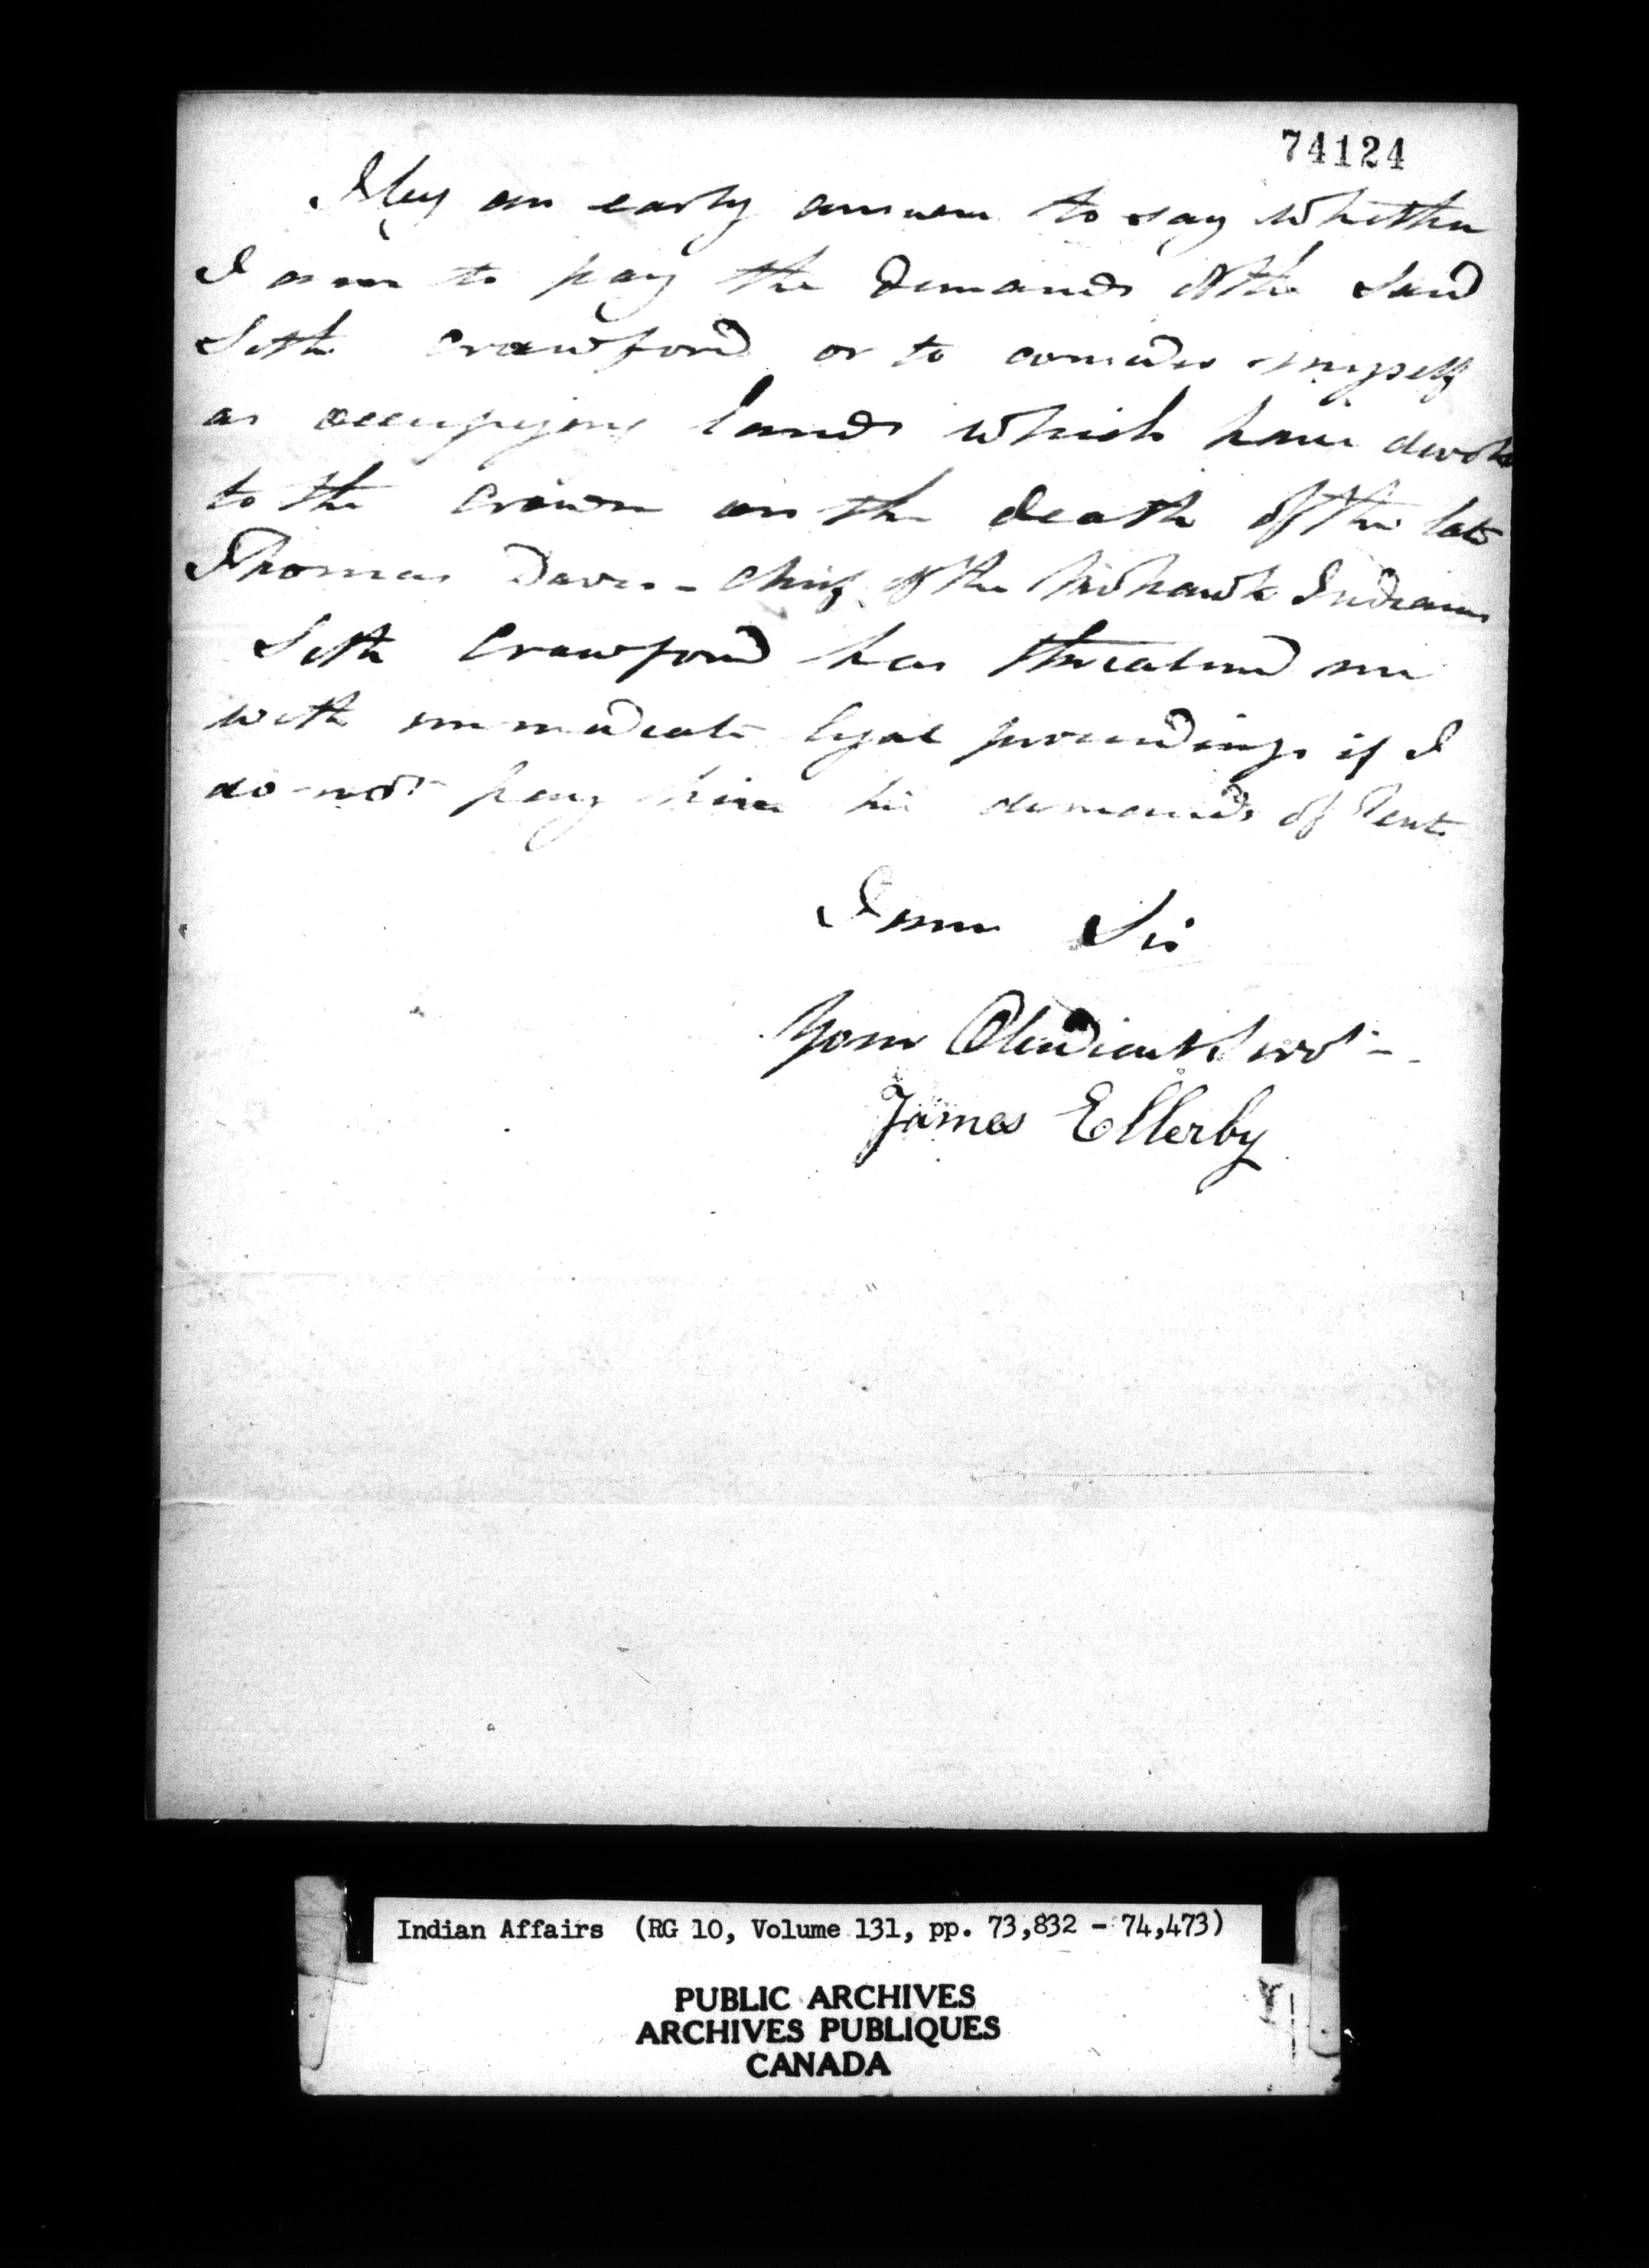 74124
I beg an early answer to say whether
I am to pay the demands of the Said
Seth Crawford or to consider myself
as occupying lands which have
to the Crown on the death of the late
Thomas Davis - Chief of the Mohawk Indians
Seth Crawford has threatened me
with immediate legal proceedings if I
do not pay him his demands of Rent
I am Sir
Your Obedient Servt -
James Ellerby
Indian Affairs (RG 10, Volume 131, pp. 73,832 - 74,473)
PUBLIC ARCHIVES
ARCHIVES PUBLIQUES
CANADA